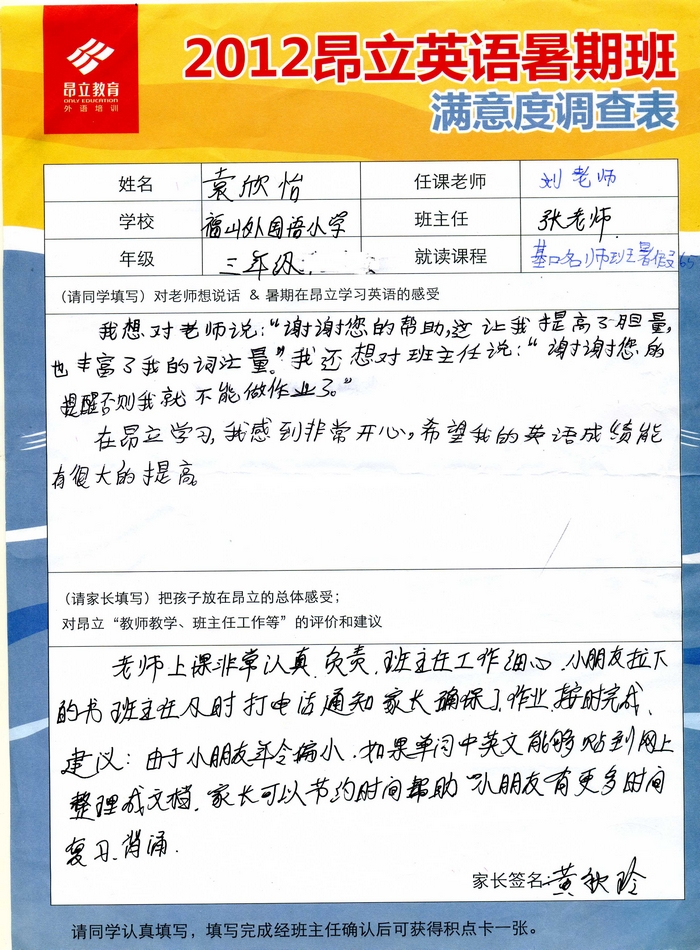 昂立教育
ONLY EDUCATION
外语培训
2012昂立英语暑期班
满意度调查表
姓名 袁欣怡 任课老师 刘老师
学校 福山外国语小学 班主任 张老师
年级 三年级 就读课程 基口名师班王暑假
(请同学填写) 对老师想说话 & 暑期在昂立学习英语的感受
我想对老师说:“谢谢您的帮助,这让我提高了胆量,
也丰富了我的词汇量。”我还想对班主任说:“谢谢您的
提醒否则我就不能做作业了。”
在昂立学习,我感到非常开心,希望我的英语成绩能
有很大的提高。
(请家长填写) 把孩子放在昂立的总体感受;
对昂立“教师教学、班主任工作等”的评价和建议
老师上课非常认真、负责,班主任工作细心、小朋友拉下
的书班主任及时打电话通知家长确保了作业按时完成、
建议:由于小朋友年令偏小、如果单词中英文能够贴到网上
整理成文档、家长可以节约时间帮助小朋友有更多时间
复习、背诵.
家长签名:黄秋玲
请同学认真填写,填写完成经班主任确认后可获得积点卡一张。